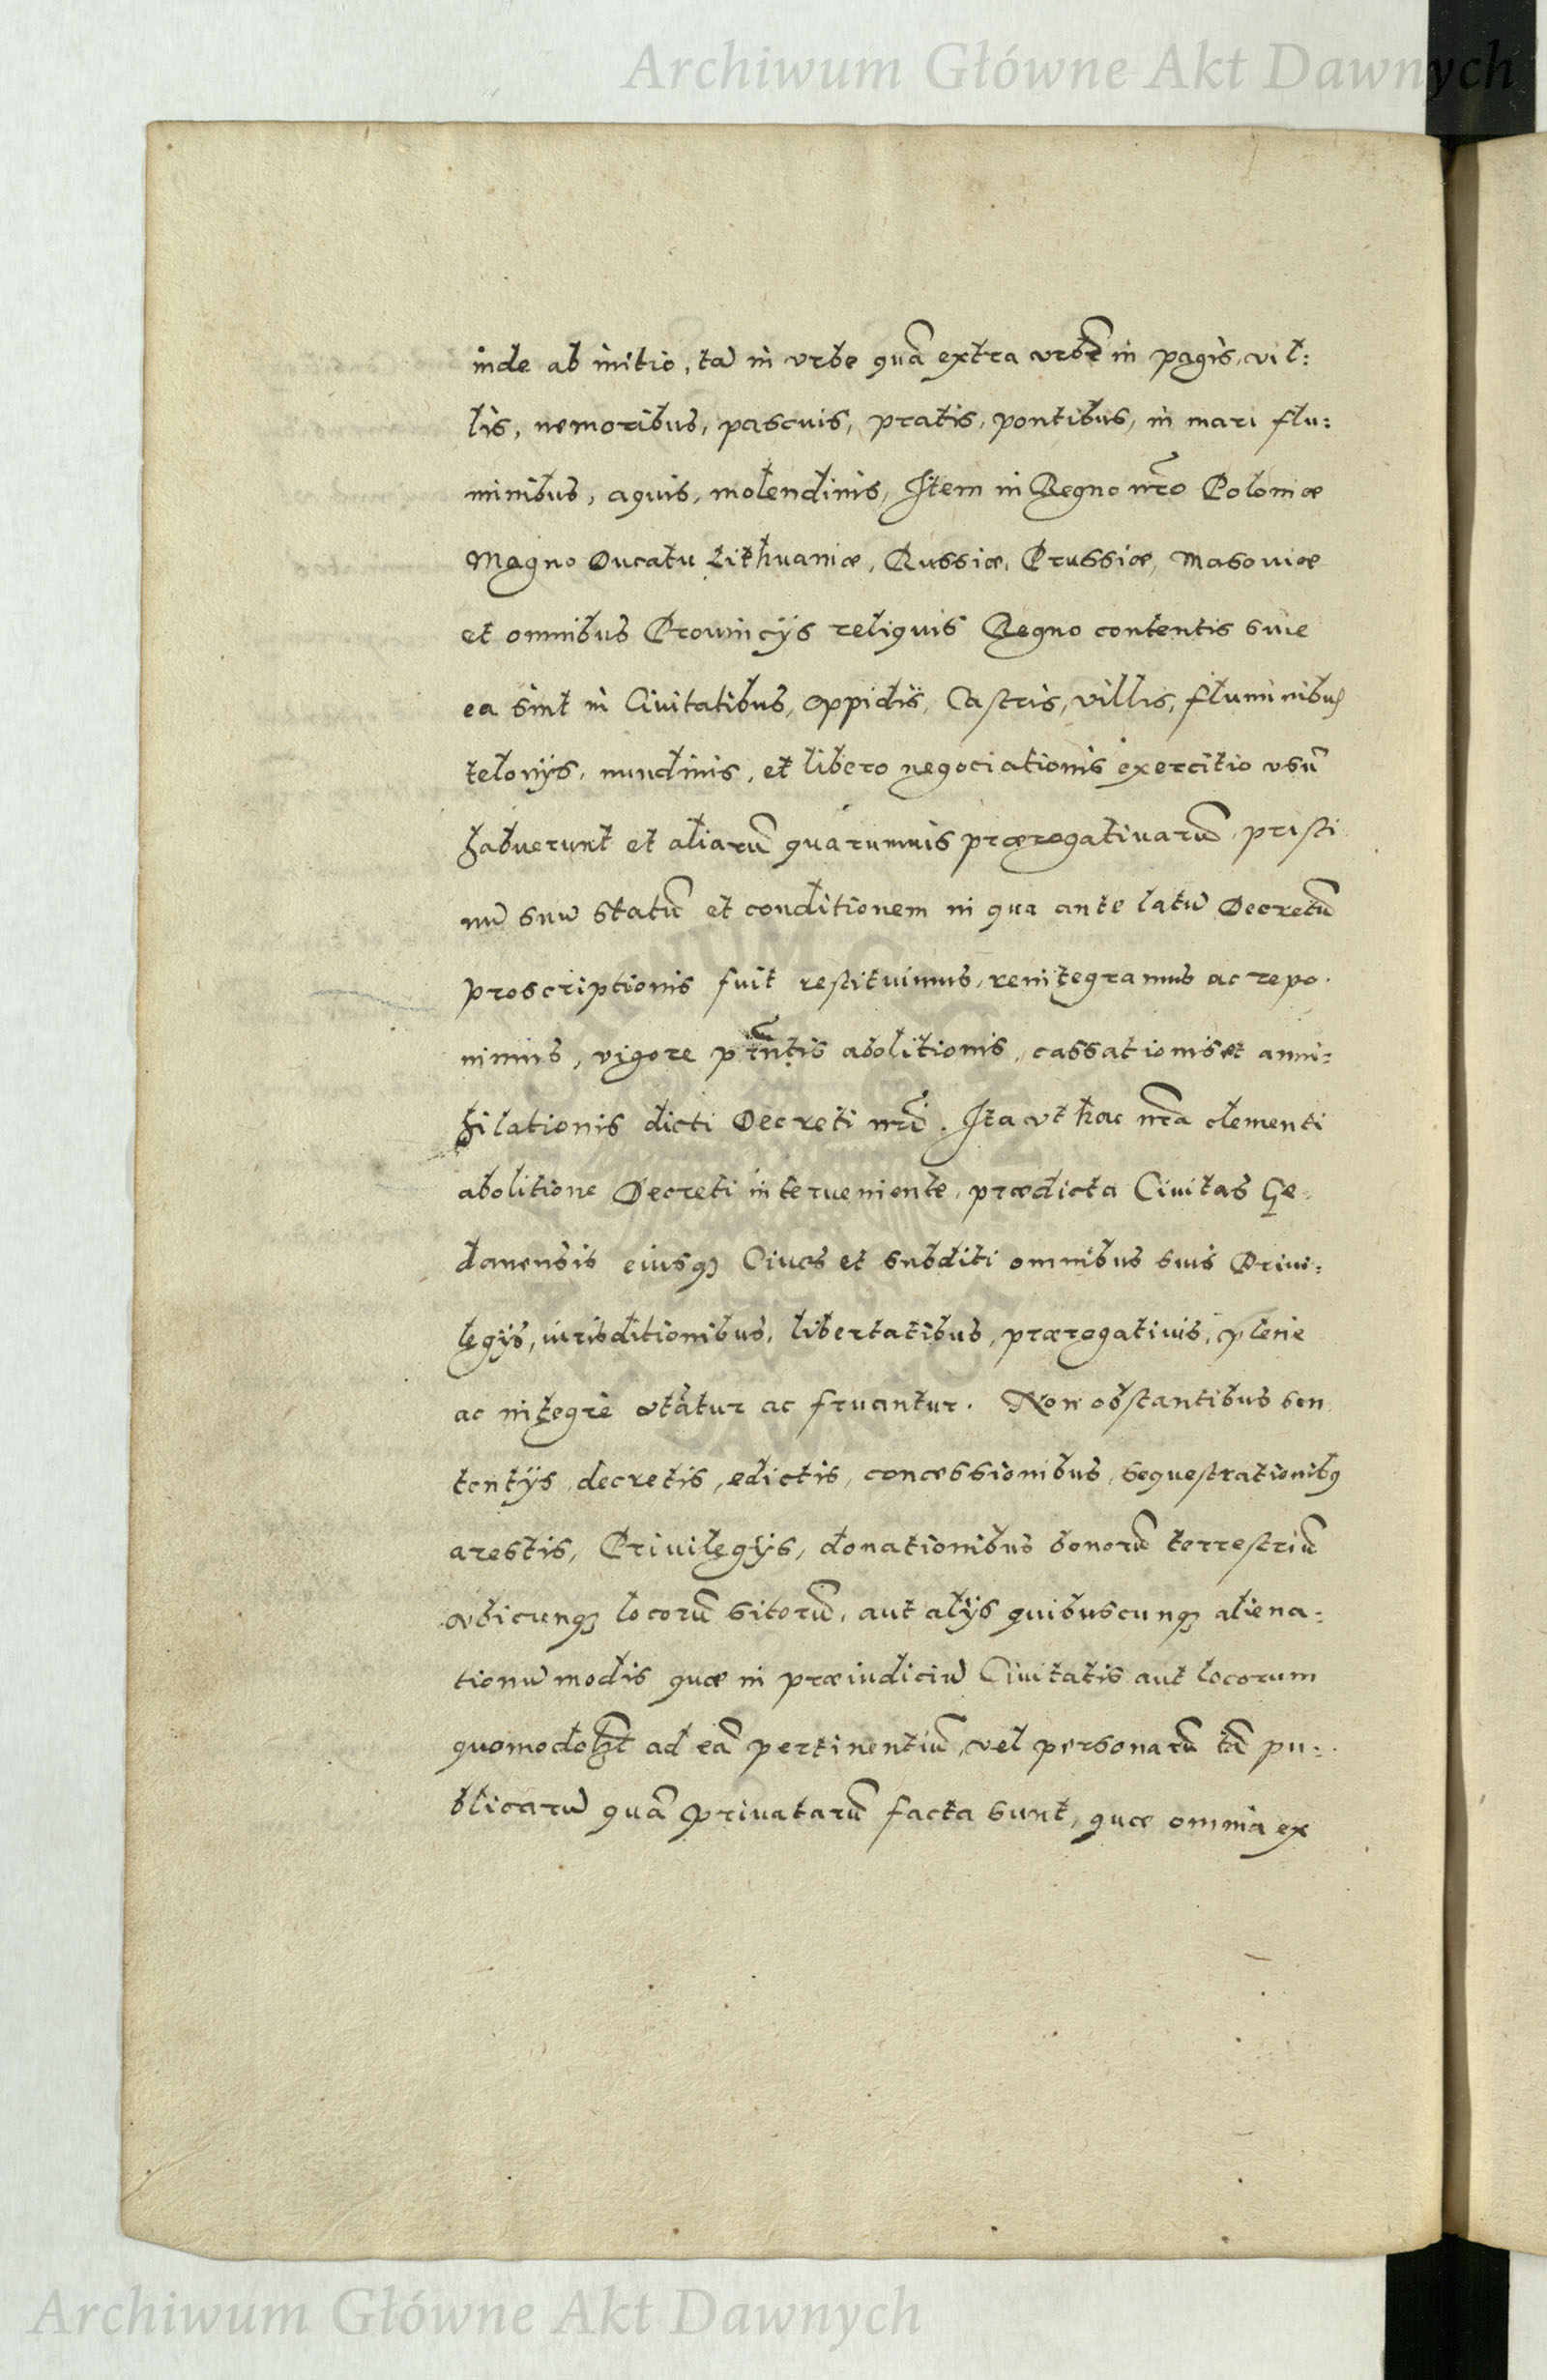 Archiwum Główne Akt Dawnych
inde ab initio, tã in vrbe quã extra vrbẽ in pagis, vil:
lis, nemoribus, pascuis, pratis, pontibus, in mari flu:
minibus, aquis, molendinis, Item in Regno nr̃o Poloniæ
Magno Ducatu Lithuaniæ, Russiæ, Prussiæ, Masouiæ
et omnibus Prouincijs reliquis Regno contentis siue
ea sint in Ciuitatibus, oppidis, Castris, villis, fluminibus
telonijs, nundinis, et libero negociationis exercitio vsũ
habuerunt et aliarũ quarumuis prærogatiuarũ, pristi
nũ suũ statũ et conditionem in qua ante latũ Decretũ
proscriptionis fuit restituimus, reintegramus ac repo.
nimus, vigore pr̃ntis abolitionis, cassationis et anni:
hilationis dicti Decreti nr̃i. Ita vt hac nr̃a clementi
abolitione Decreti interueniente, prædicta Ciuitas Ge.
danensis eiusq3 Ciues et subditi omnibus suis Priui:
legijs, iurisditionibus, libertatibus, prærogatiuis, plenè
ac integrè vtãtur ac fruantur. Non obstantibus sen
tentijs, decretis, edictis, concessionibus, sequestrationibq
arestis, Priuilegijs, donationibus bonorũ terrestriũ
vbicunq3 locorũ sitorũ, aut alijs quibuscunq3 aliena:
tionũ modis quæ in præiudiciũ Ciuitatis aut locorum
quomodolibet ad eã pertinentiũ, vel personarũ tã pu:
blicarũ quã priuatarũ facta sunt, quæ omnia ex
Archiwum Główne Akt Dawnych